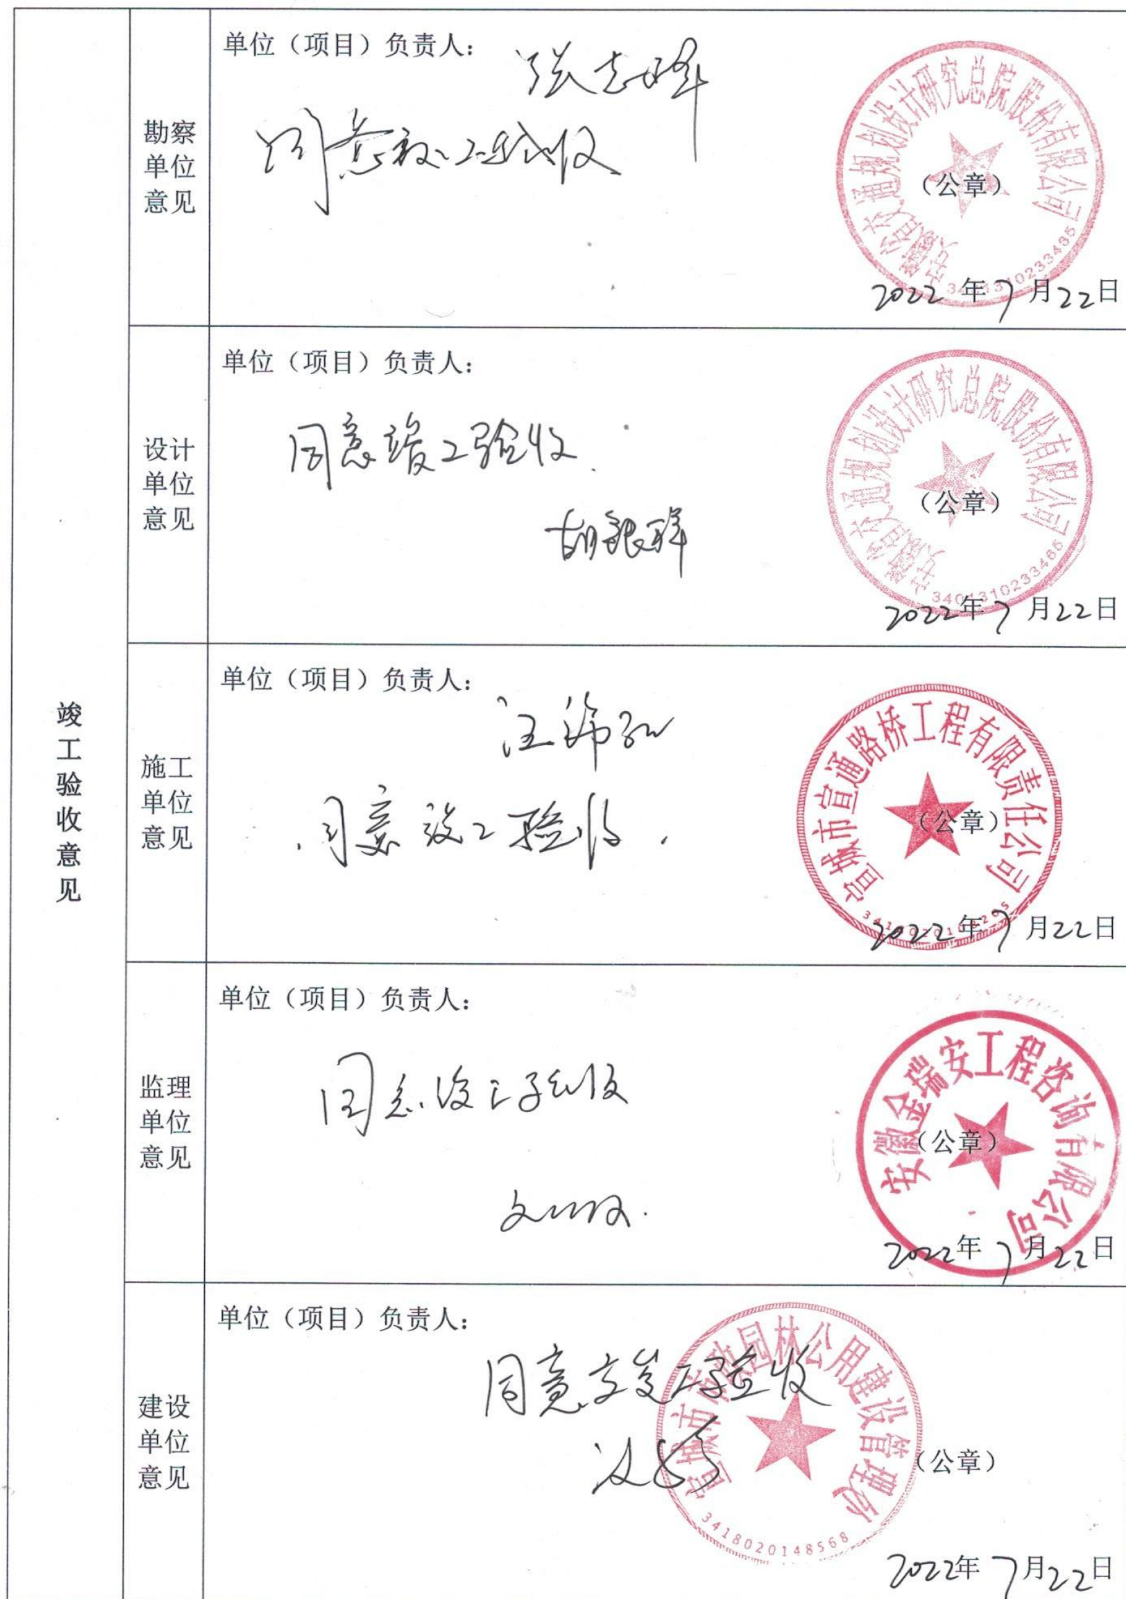 竣工验收意见
勘察单位意见
单位（项目）负责人：
张志峰
同意竣工验收
安徽省交通规划设计研究总院股份有限公司
（公章）
2022年7月22日
设计单位意见
单位（项目）负责人：
同意竣工验收
胡银祥
安徽省交通规划设计研究总院股份有限公司
（公章）
3401310233485
2022年7月22日
施工单位意见
单位（项目）负责人：
同意竣工验收
宣城市宣通路桥工程有限责任公司
（公章）
2022年7月22日
监理单位意见
单位（项目）负责人：
同意竣工验收
安徽金瑞安工程咨询有限公司
（公章）
2022年7月22日
建设单位意见
单位（项目）负责人：
同意竣工验收
宣城市市政园林公用建设管理处
（公章）
3418020148568
2022年7月22日